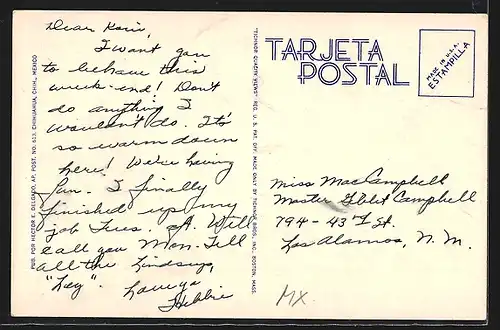 Dear Kain,
I want you
to behave this
week-end! Don't
do anything I
wouldn't do. It's
so warm down
here! We're having
fun. I finally
finished up my
job Tues. Will
call you Mon. Tell
all the Lindseys,
"Hey."
Love ya
Hibbie
PUB. POR HECTOR E. DELGADO, AP. POST. NO. 613, CHIHUAHUA, CHIH., MEXICO
"TICHNOR QUALITY VIEWS" REG. U. S. PAT. OFF. MADE ONLY BY TICHNOR BROS., INC., BOSTON, MASS.
TARJETA
POSTAL
MADE IN U.S.A.
ESTAMPILLA
Miss Mac Campbell
Master Campbell
794-43rd St.
Los Alamos, N. M.
MX